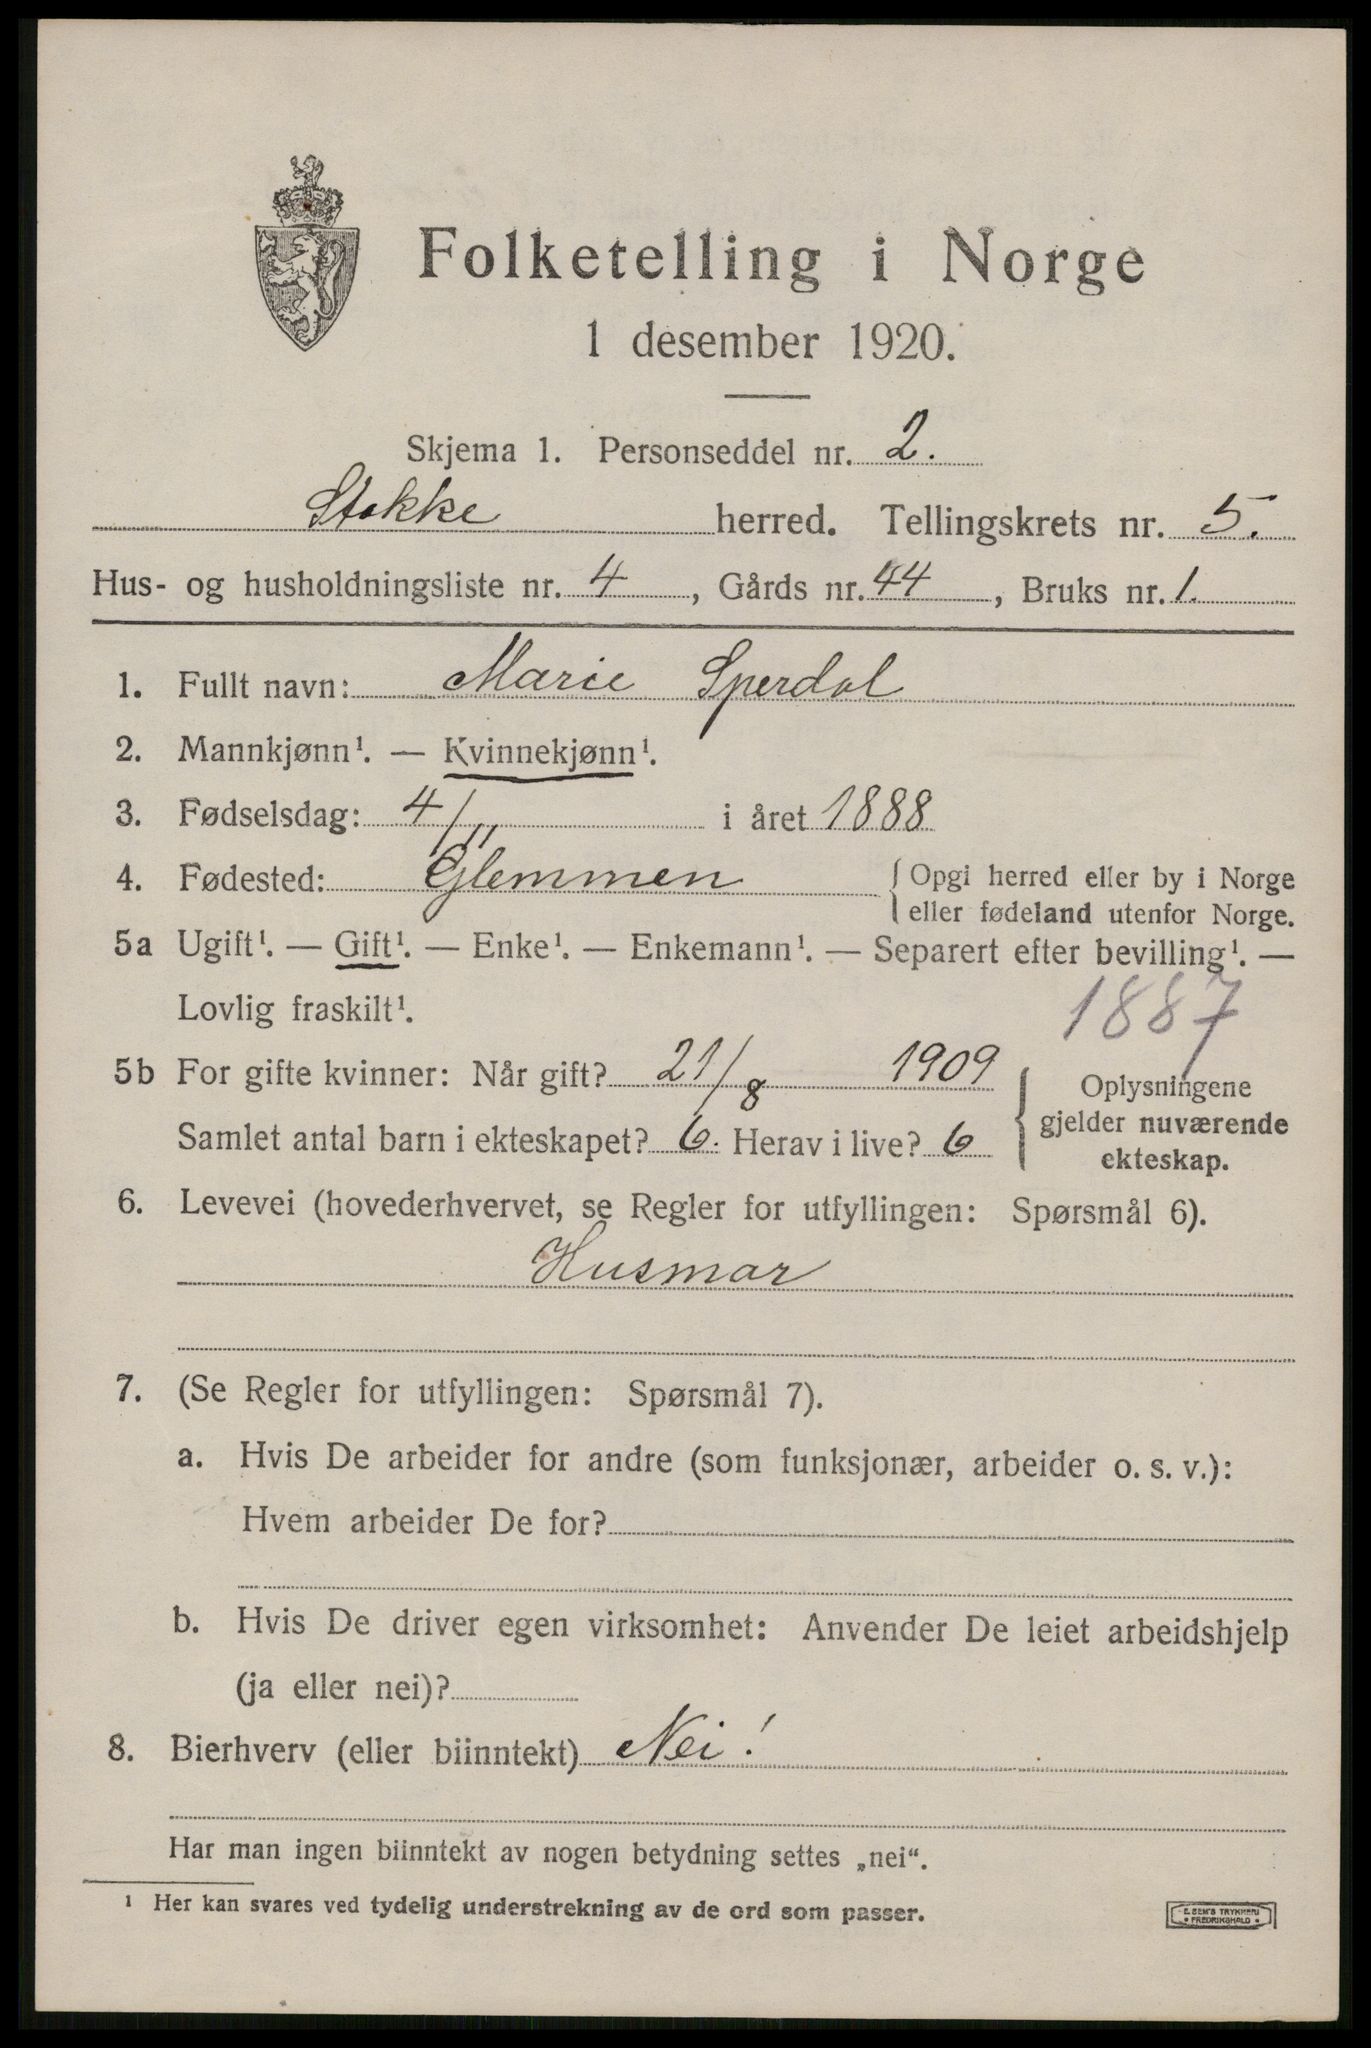 Folketelling i Norge
1 desember 1920.
Skjema 1. Personseddel nr. 2.
Stokke herred. Tellingskrets nr. 5.
Hus- og husholdningsliste nr. 4, Gårds nr. 44, Bruks nr. 1.
1. Fullt navn: Marie Sperdal
2. Mannkjønn¹. — Kvinnekjønn¹.
3. Fødselsdag: 4/11 i året 1888
4. Fødested: Glemmen { Opgi herred eller by i Norge
eller fødeland utenfor Norge.
5a Ugift¹. — Gift¹. — Enke¹. — Enkemann¹. — Separert efter bevilling¹. —
Lovlig fraskilt¹. 1887
5b For gifte kvinner: Når gift? 21/8 1909 { Oplysningene
gjelder nuværende
ekteskap.
Samlet antal barn i ekteskapet? 6. Herav i live? 6
6. Levevei (hovederhvervet, se Regler for utfyllingen: Spørsmål 6).
Husmor
7. (Se Regler for utfyllingen: Spørsmål 7).
a. Hvis De arbeider for andre (som funksjonær, arbeider o. s. v.):
Hvem arbeider De for?
b. Hvis De driver egen virksomhet: Anvender De leiet arbeidshjelp
(ja eller nei)?
8. Bierhverv (eller biinntekt) Nei!
Har man ingen biinntekt av nogen betydning settes „nei“.
¹ Her kan svares ved tydelig understrekning av de ord som passer.
E. SEM'S TRYKKERI
• FREDRIKSHALD •